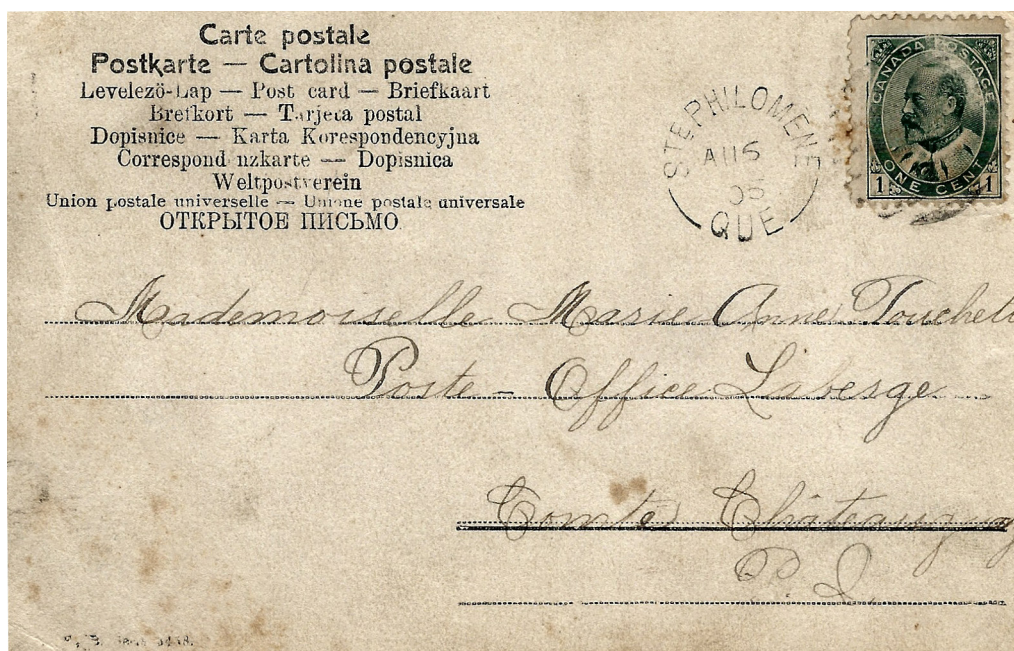 Carte postale
Postkarte — Cartolina postale
Levelezö-Lap — Post card — Briefkaart
Brefkort — Tarjeta postal
Dopisnice — Karta Korespondencyjna
Correspond nzkarte — Dopisnica
Weltpostverein
Union postale universelle — Unione postale universale
ОТКРЫТОЕ ПИСЬМО
STE PHILOMENE
AU 6
QUE
CANADA POSTAGE
ONE CENT
1 1
Mademoiselle Marie Anne
Poste-Office Laberge
Comté Châteauguay
P. Q.